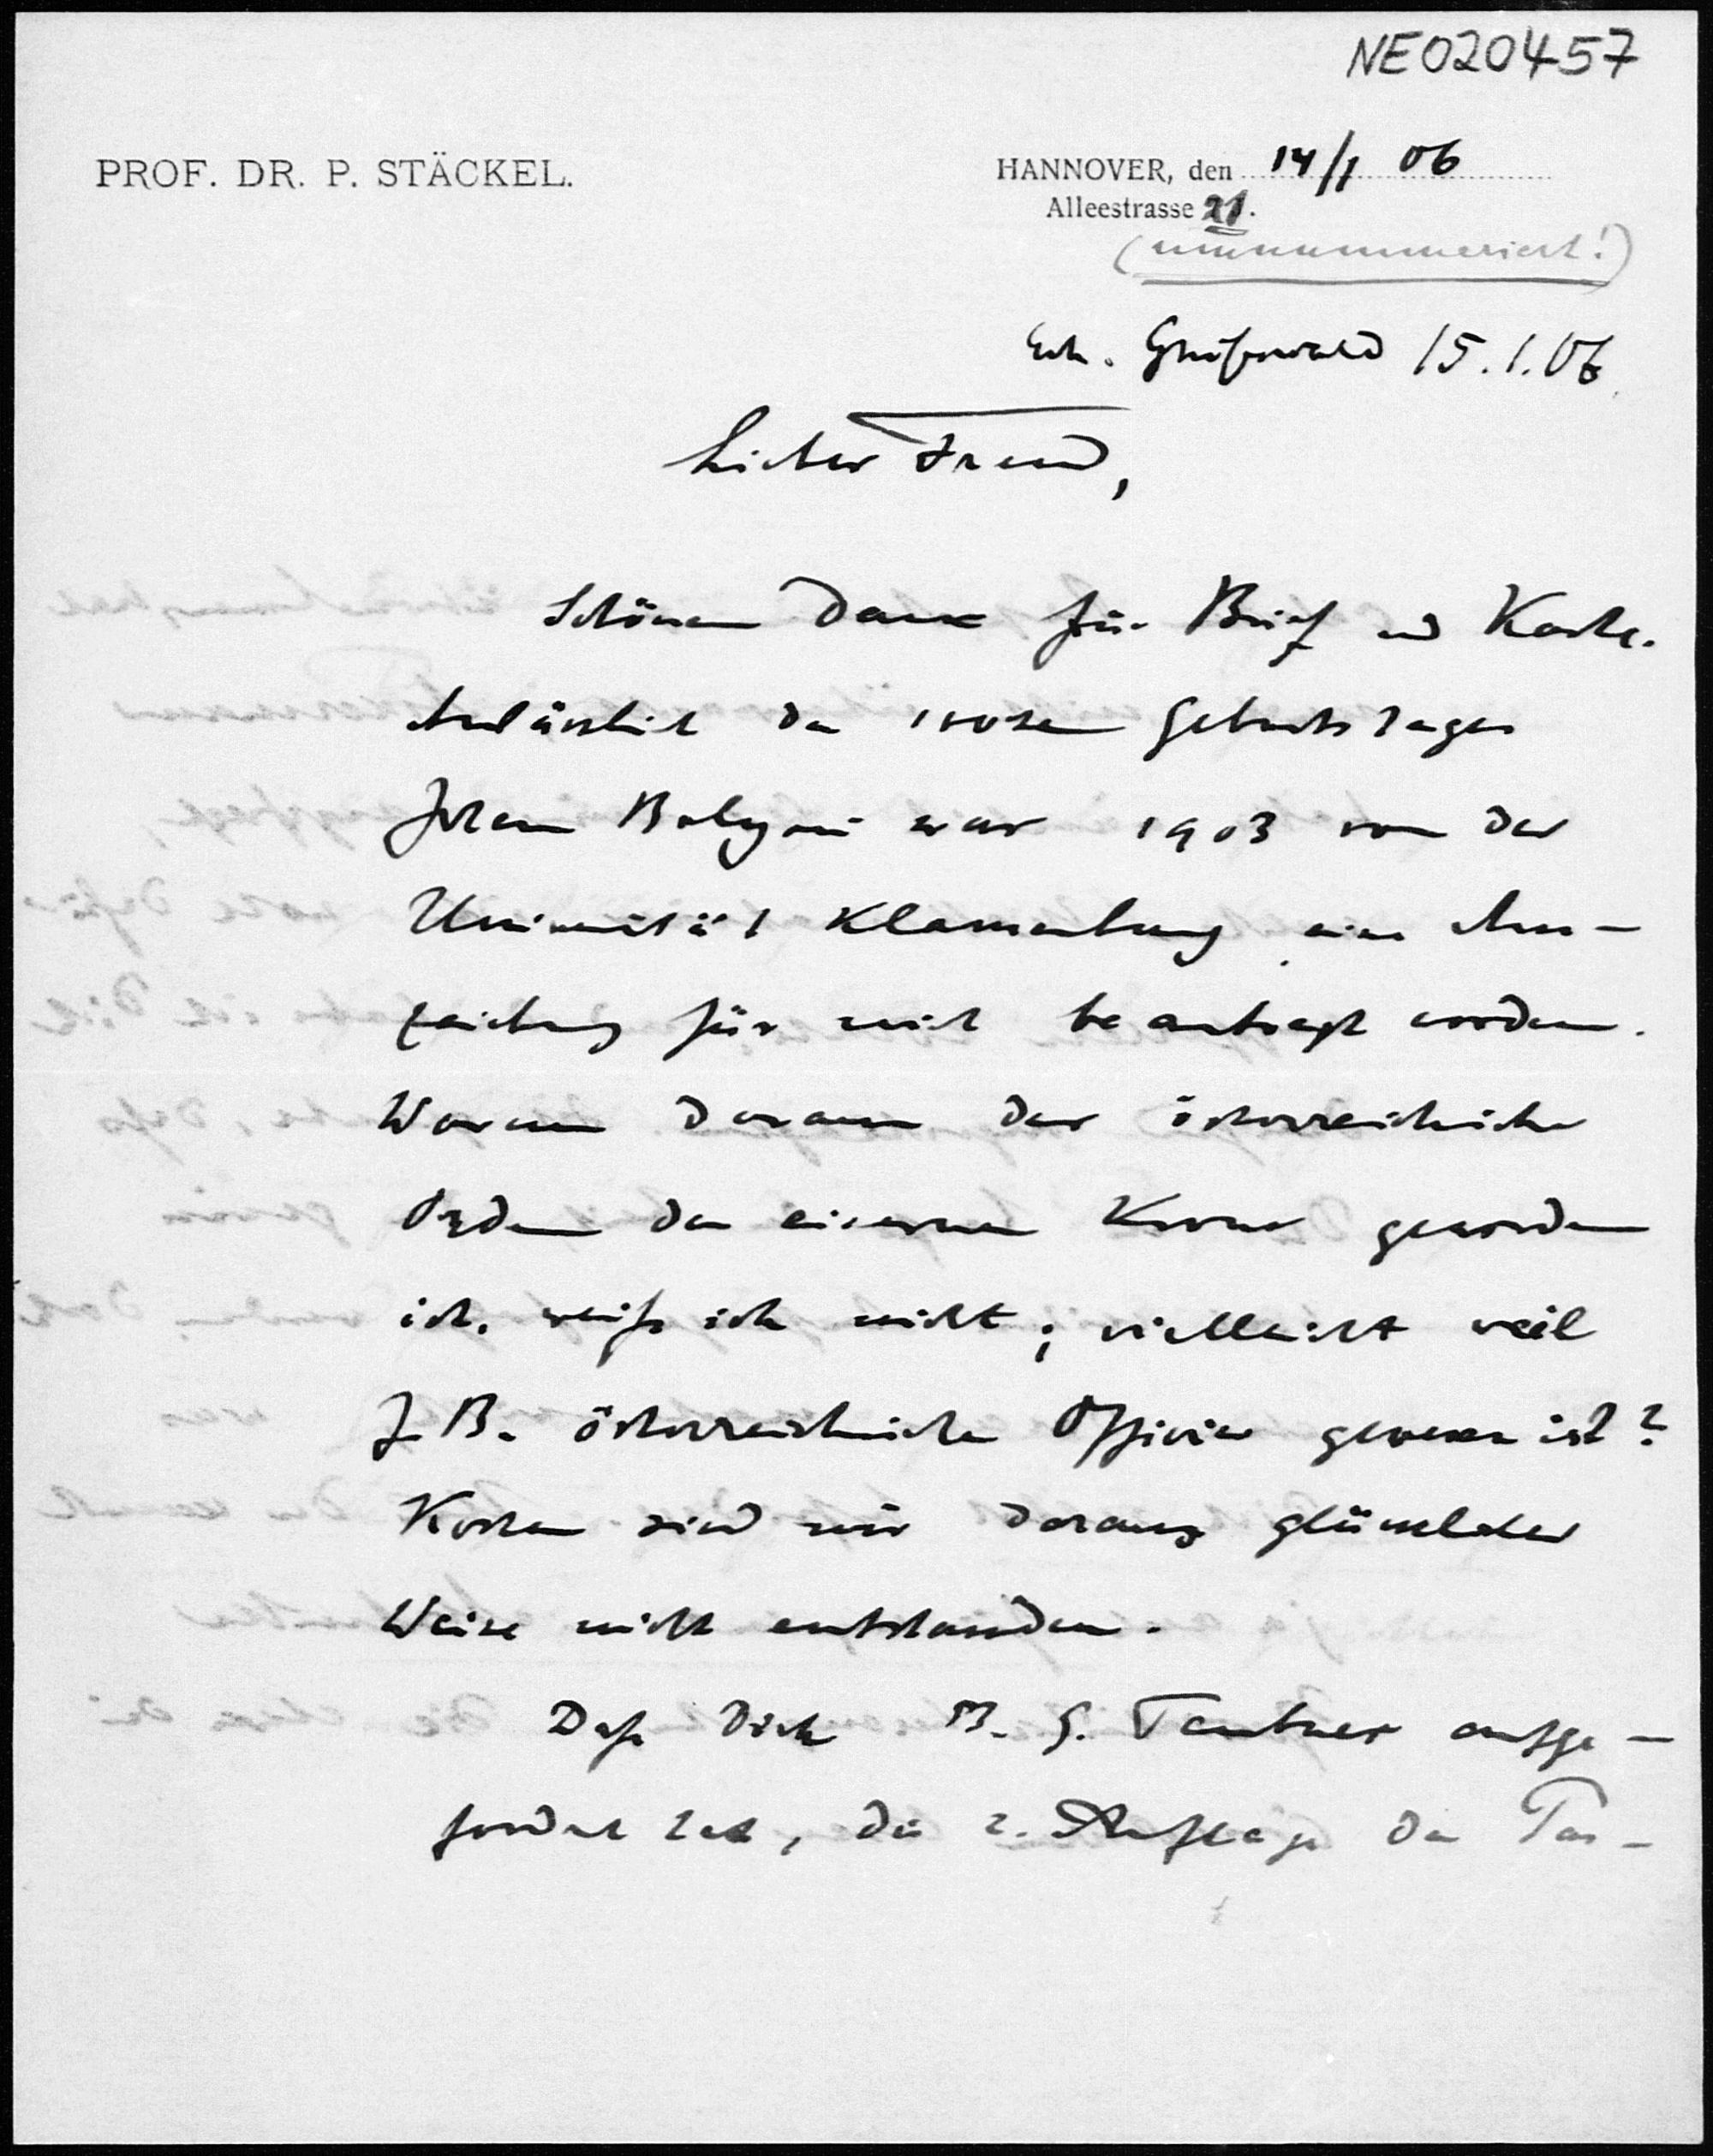 NE020457
PROF. DR. P. STÄCKEL.
HANNOVER, den 14/1 06
Alleestrasse 21.
(umnummeriert!)
Erh. Greifswald 15.1.06.
Lieber Freund,
Schönen Dank für Brief und Karte.
Anlässlich des 100ten Geburtstages
Johann Bolyais war 1903 von der
Universität Klausenburg eine Aus-
zeichnung für mich beantragt worden.
Warum daraus der österreichische
Orden der eisernen Krone geworden
ist, weiß ich nicht; vielleicht weil
J. B. österreichischer Offizier gewesen ist?
Kosten sind mir daraus glücklicher
Weise nicht entstanden.
Daß Dich B. G. Teubner aufge-
fordert hat, die 2. Auflage des Pas-